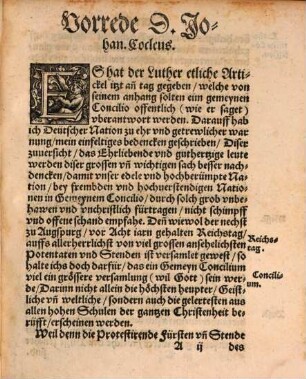 Vorrede D. Jo-
han. Cocleus.
ES hat der Luther etliche Arti-
ckel itzt añ tag gegeben / welche von
seinem anhang solten ein gemeynen
Concilio offentlich (wie er saget)
vberantwort werden. Darauff hab
ich Deutscher Nation zu ehr vnd getrewlicher war
nung / mein einfeltiges bedencken geschrieben / Diser
zuuersicht / das Ehrliebende vnd guthertzige leute
werden diser grossen vñ wichtigen sach besser nach-
dencken / damit vnser edele vnd hochberümpte Na-
tion / bey frembden vnd hochuerstendigen Natio-
nen in Gemeynem Concilio / durch solch grob vnbe-
hawen vnd vnchristlich fürtragen / nicht schimpff
vnd offentschand empfahe. Den wiewol der nechst
zu Augspurg / vor Acht iarn gehalten Reichstag /
auffs allerherrlichst von viel grossen ansehelichsten
Potentaten vnd Stenden ist versamlet gewest / so
halte ichs doch darfür / das ein Gemeyn Concilium
viel ein grössere versamlung (wil Gott) sein wer-
de / Darum̄ nicht allein die höchsten heupter / Geist-
liche vñ weltliche / sondern auch die gelertesten aus
allen hohen Schulen der gantzen Christenheit be-
rüfft / erscheinen werden.
Weil denn die Protestirende Fürsten vñ Stende
A ij des
Reichs-
tag.
Concili-
um.